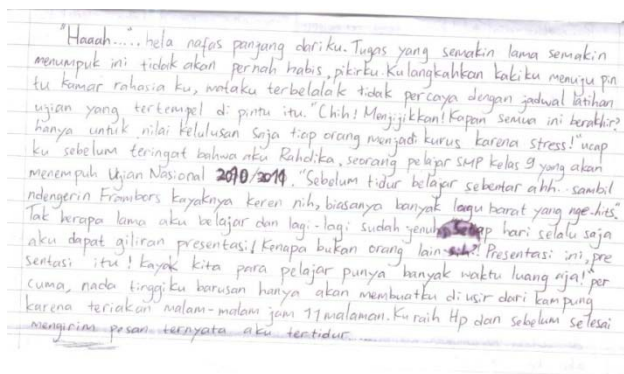 "Haaah....." hela nafas panjang dariku. Tugas yang semakin lama semakin
menumpuk ini tidak akan pernah habis, pikirku. Ku langkahkan kakiku menuju pin
tu kamar rahasia ku, mataku terbelalak tidak percaya dengan jadwal latihan
ujian yang tertempel di pintu itu. "Chih! Menjijikkan! Kapan semua ini berakhir?
hanya untuk nilai kelulusan saja tiap orang menjadi kurus karena stress!" ucap
ku sebelum teringat bahwa aku Rahdika, seorang pelajar SMP kelas 9 yang akan
menempuh Ujian Nasional 2010/2011. "Sebelum tidur belajar sebentar ahh.. sambil
ndengerin Frambors kayaknya keren nih, biasanya banyak lagu barat yang nge-hits."
Tak berapa lama aku belajar dan lagi-lagi sudah jenuh. Setiap hari selalu saja
aku dapat giliran presentasi! Kenapa bukan orang lain sih?! Presentasi ini, pre
sentasi itu! kayak kita para pelajar punya banyak waktu luang aja!" per
cuma, nada tinggiku barusan hanya akan membuatku di usir dari kampung
karena teriakan malam-malam jam 11 malaman. Ku raih Hp dan sebelum selesai
mengirim pesan ternyata aku tertidur....